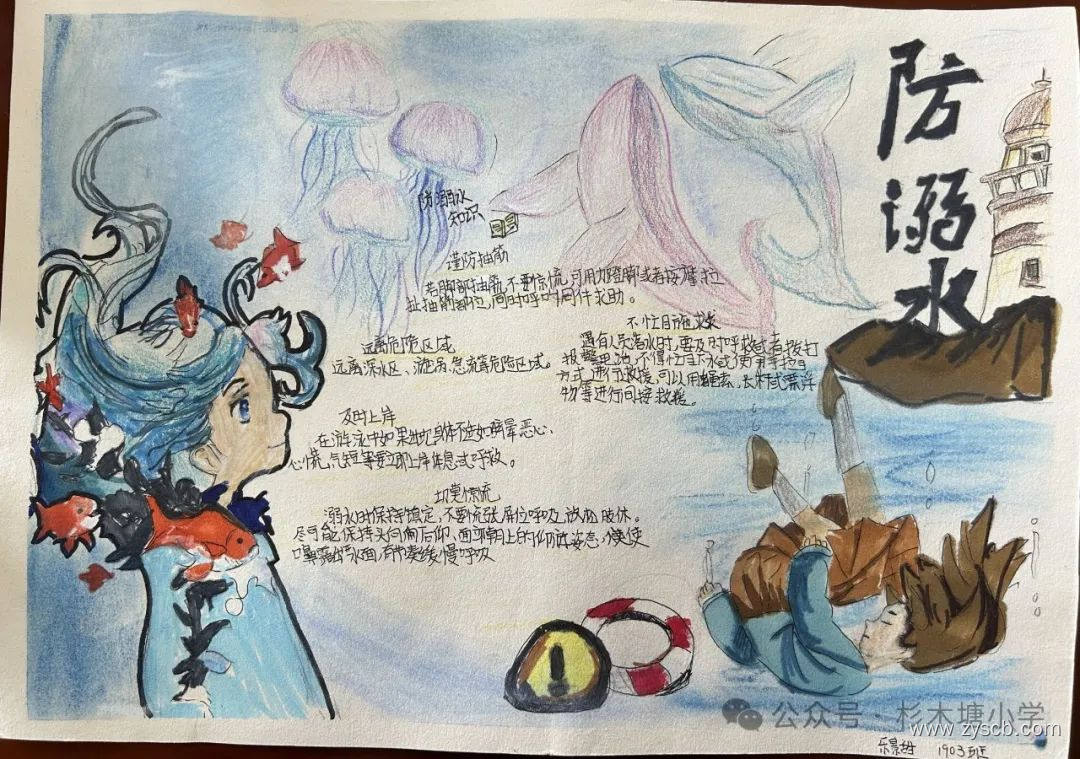 防溺水
防溺水
知识
谨防抽筋
若脚部抽筋,不要惊慌,可用力蹬脚或者按摩拉
扯抽筋部位,同时呼叫同伴求助。
不盲目施救
遇有人员落水时,要及时呼救或者拨打
报警电话,不得盲目下水或使用手拉手
方式进行救援,可以用绳索、长杆或漂浮
物等进行间接救援。
远离危险区域
远离深水区、漩涡、急流等危险区域。
及时上岸
在游泳中如果出现身体不适如眩晕恶心、
心慌、气短等要立即上岸休息或呼救。
切莫惊慌
溺水时保持镇定,不要慌张,屏住呼吸,放松肢体。
尽可能保持头向后仰、面部朝上的仰泳姿态,使
口鼻露出水面,有节奏缓慢呼吸
公众号·杉木塘小学
www.zyscb.com
1903班